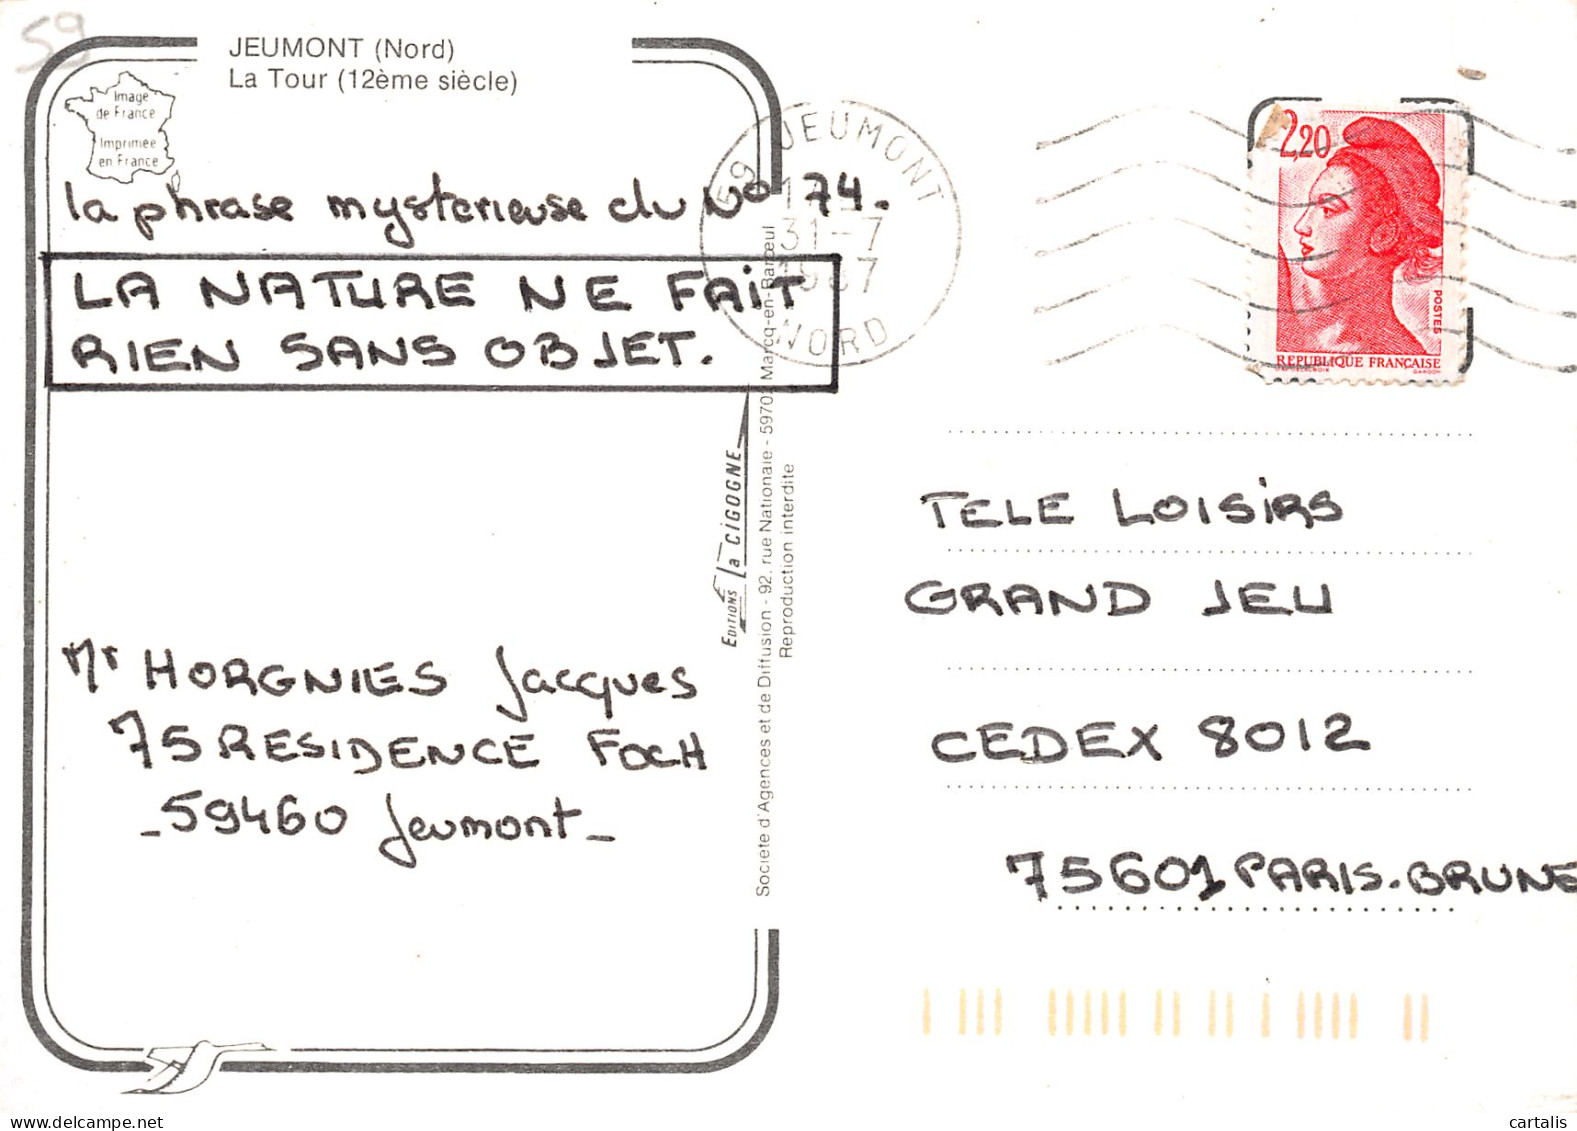 59
JEUMONT (Nord)
La Tour (12ème siècle)
Image
de France
Imprimée
en France
la phrase mysterieuse du N° 74.
LA NATURE NE FAIT
RIEN SANS OBJET.
Mr HORGNIES Jacques
75 RESIDENCE FOCH
_59460 Jeumont_
EDITIONS La CIGOGNE
Société d'Agences et de Diffusion - 92, rue Nationale - 59702 Marcq-en-Barœul
Reproduction interdite
59 JEUMONT
31-7
1987
NORD
2,20
POSTES
REPUBLIQUE FRANÇAISE
GANDON
TELE LOISIRS
GRAND JEU
CEDEX 8012
75601 PARIS.BRUNE
cartalis